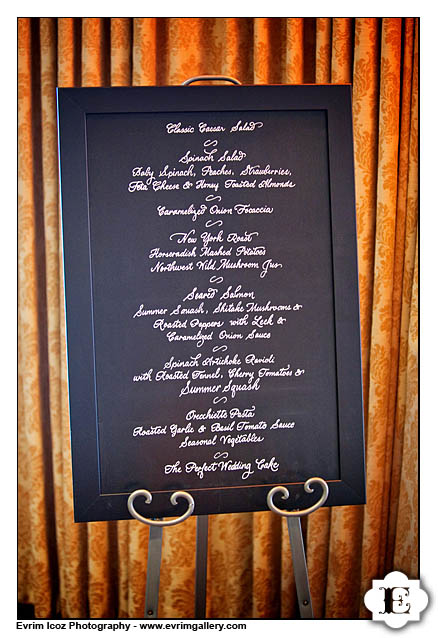 Classic Caesar Salad
Spinach Salad
Baby Spinach, Peaches, Strawberries,
Feta Cheese & Honey Toasted Almonds
Caramelized Onion Focaccia
New York Roast
Horseradish Mashed Potatoes
Northwest Wild Mushroom Jus
Seared Salmon
Summer Squash, Shitake Mushrooms &
Roasted Peppers with Leek &
Caramelized Onion Sauce
Spinach Artichoke Ravioli
with Roasted Fennel, Cherry Tomatoes &
Summer Squash
Orecchiette Pasta
Roasted Garlic & Basil Tomato Sauce
Seasonal Vegetables
The Perfect Wedding Cake
E
Evrim Icoz Photography - www.evrimgallery.com